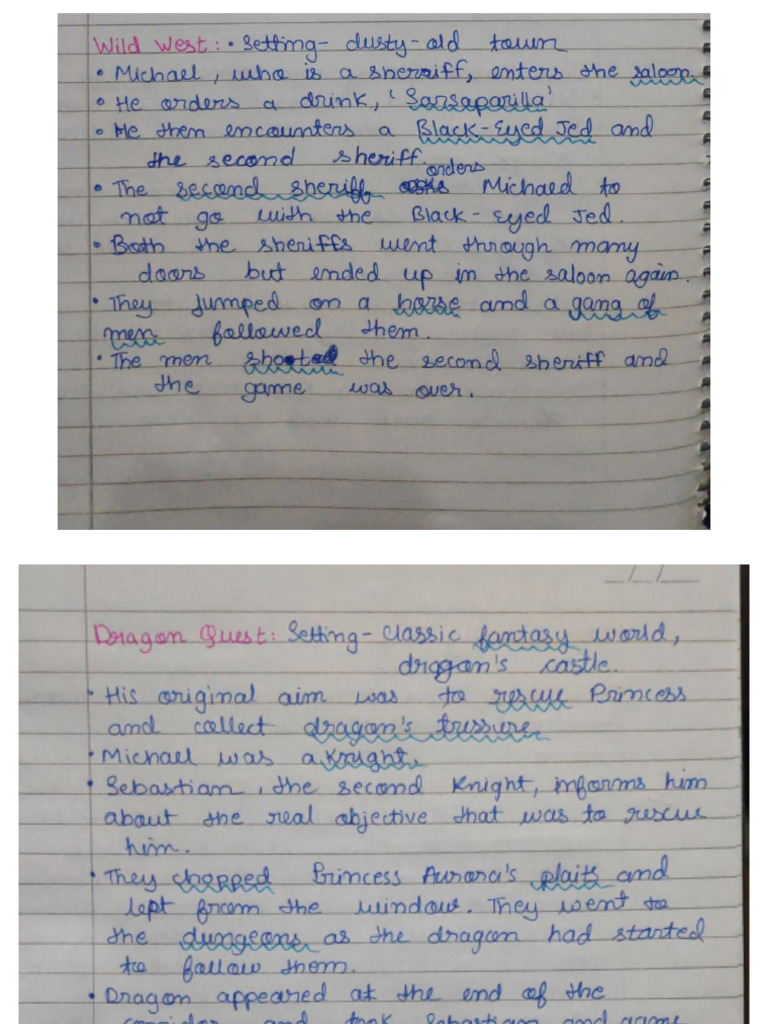 Wild West: • Setting- dusty-old town
• Michael, who is a sherriff, enters the saloon.
• He orders a drink, 'Sarsaparilla'
• He then encounters a Black-Eyed Jed and
the second sheriff.
orders
• The second sheriff Michael to
not go with the Black-Eyed Jed.
• Both the sheriffs went through many
doors but ended up in the saloon again.
• They Jumped on a horse and a gang of
men followed them.
• The men shooted the second sheriff and
the game was over.
_/_/__
Dragon Quest: Setting- Classic fantasy world,
dragan's castle.
• His original aim was to rescue Princess
and collect dragon's tressure.
• Michael was a Knight.
• Sebastian, the second Knight, informs him
about the real objective that was to rescue
him.
• They chopped Princess Aurora's plaits and
lept from the window. They went to
the dungeons as the dragon had started
to follow them.
• Dragon appeared at the end of the
corridor and took Sebastian and game